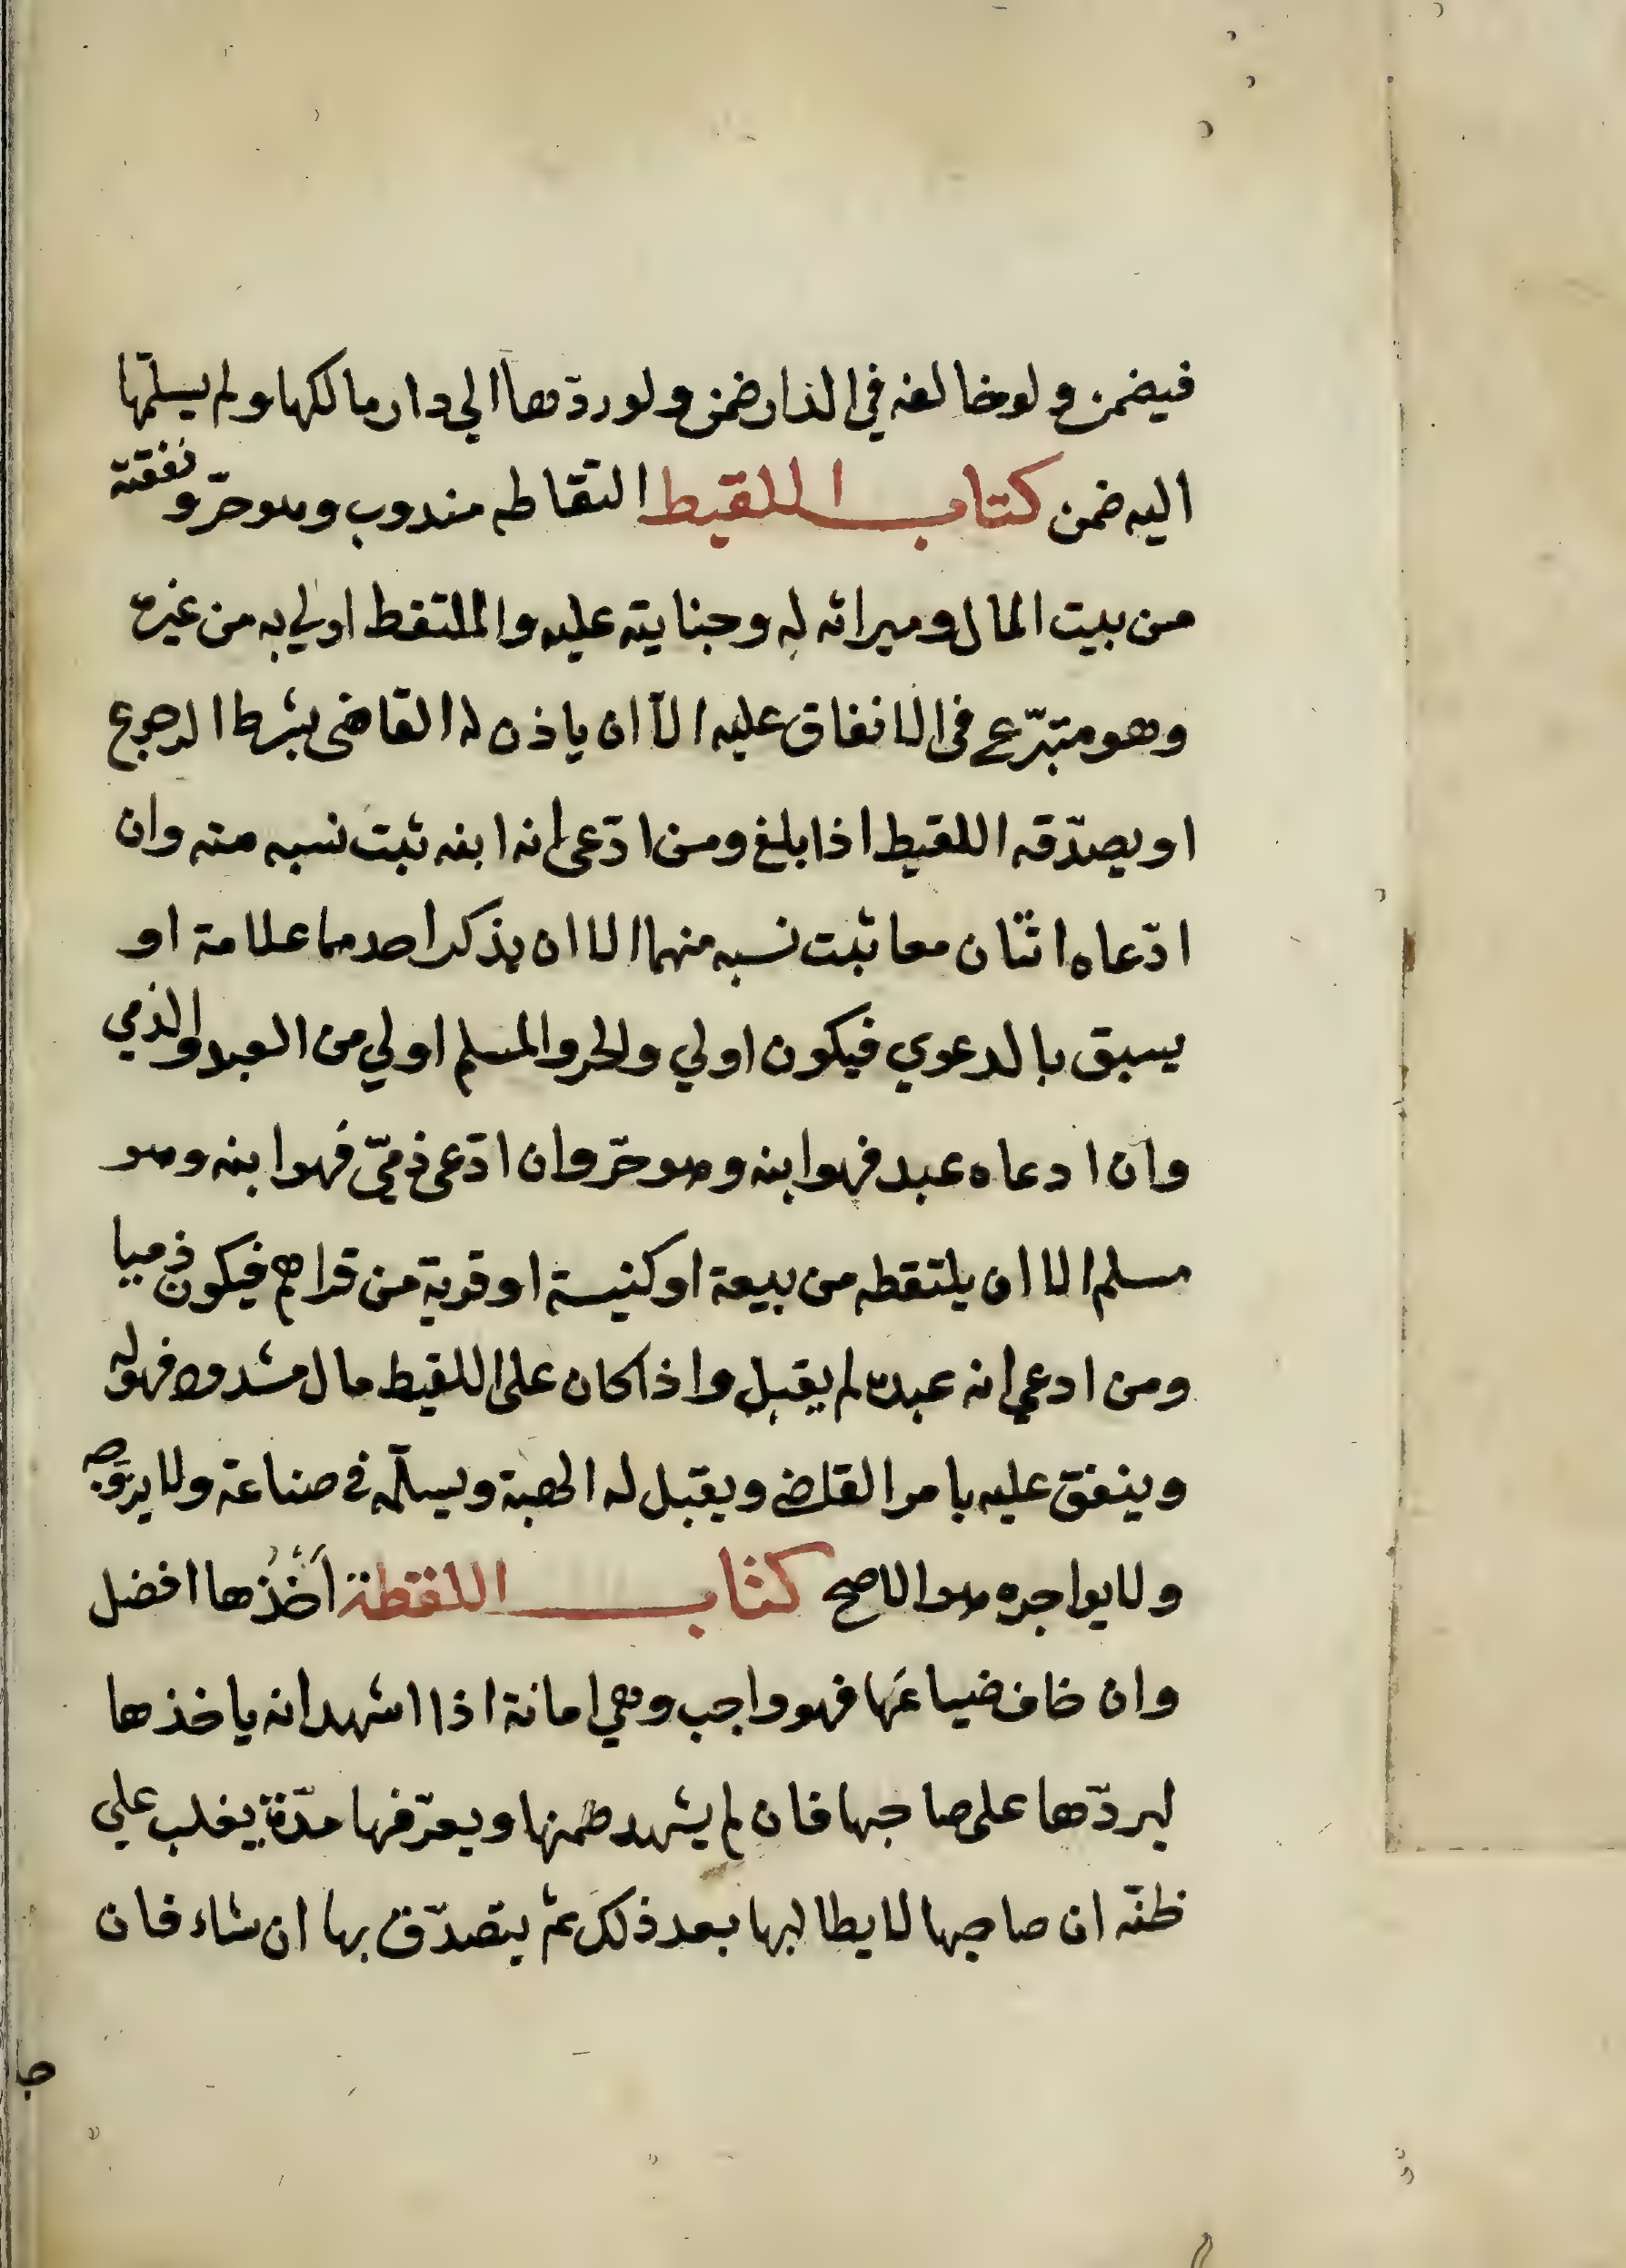 فيضمن ولو خالفه في الدار ضمن ولو ردّها الي دار مالكها ولم يسلّمها
اليه ضمن كتاب اللقيط التقاطه مندوب وهو حرّ ونفقته
من بيت المال وميراثه له وجنايته عليه والملتقط اولي به من غيره
وهو متبرّع في الانفاق عليه الاّ ان ياذن له القاضى بشرط الرجوع
او يصدّقه اللقيط اذا بلغ ومن ادّعى انه ابنه ثبت نسبه منه وان
ادّعاه اثنان معا ثبت نسبه منهما الا ان يذكر احدهما علامة او
يسبق بالدعوي فيكون اولي والحر والمسلم اولي من العبد والذمي
وان ادعاه عبد فهو ابنه وهو حرّ وان ادّعى ذمّي فهو ابنه وهو
مسلم الا ان يلتقطه من بيعة او كنيسة او قرية من قراهم فيكون ذميا
ومن ادعي انه عبده لم يقبل واذا كان على اللقيط مال مشدود فهو له
وينفق عليه بامر القاضي ويقبل له الهبة ويسلّمه في صناعة ولا يزوّجه
ولا يواجره هو الاصح كتاب اللقطة اخذها افضل
وان خاف ضياعها فهو واجب وهي امانة اذا اشهد انه ياخذها
ليردّها على صاحبها فان لم يشهد ضمنها ويعرّفها مدّة يغلب علي
ظنّه ان صاحبها لا يطالبها بعد ذلك ثم يتصدّق بها ان شاء فان
جا